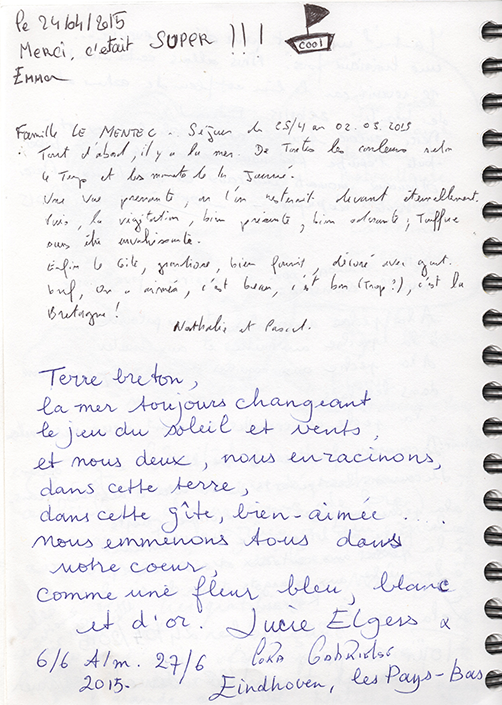 le 24/04/2015
Merci, c'était SUPER !!!
COOL
Emma
Famille LE MENTEC. Séjour du 25/4 au 02.05.2015
Tout d'abord, il y a la mer. De toutes les couleurs selon
le temps et les moments de la journée.
Une vue prenante, on l'on resterait devant éternellement.
Puis, la végétation, bien présente, bien odorante, touffue
sans être envahissante.
Enfin le Gîte, grandiose, bien fourni, décoré avec goût.
Bref, on a aimé, c'est beau, c'est bon (Trop?), c'est la
Bretagne!
Nathalie et Pascal.
Terre breton,
la mer toujours changeant
le jeu du soleil et vents,
et nous deux, nous enracinons,
dans cette terre,
dans cette gîte, bien-aimée ....
nous emmenons tous dans
notre coeur,
comme une fleur bleu, blanc
et d'or. Lucie Elgers &
6/6 A/m. 27/6
2015.
Eindhoven, les Pays-Bas